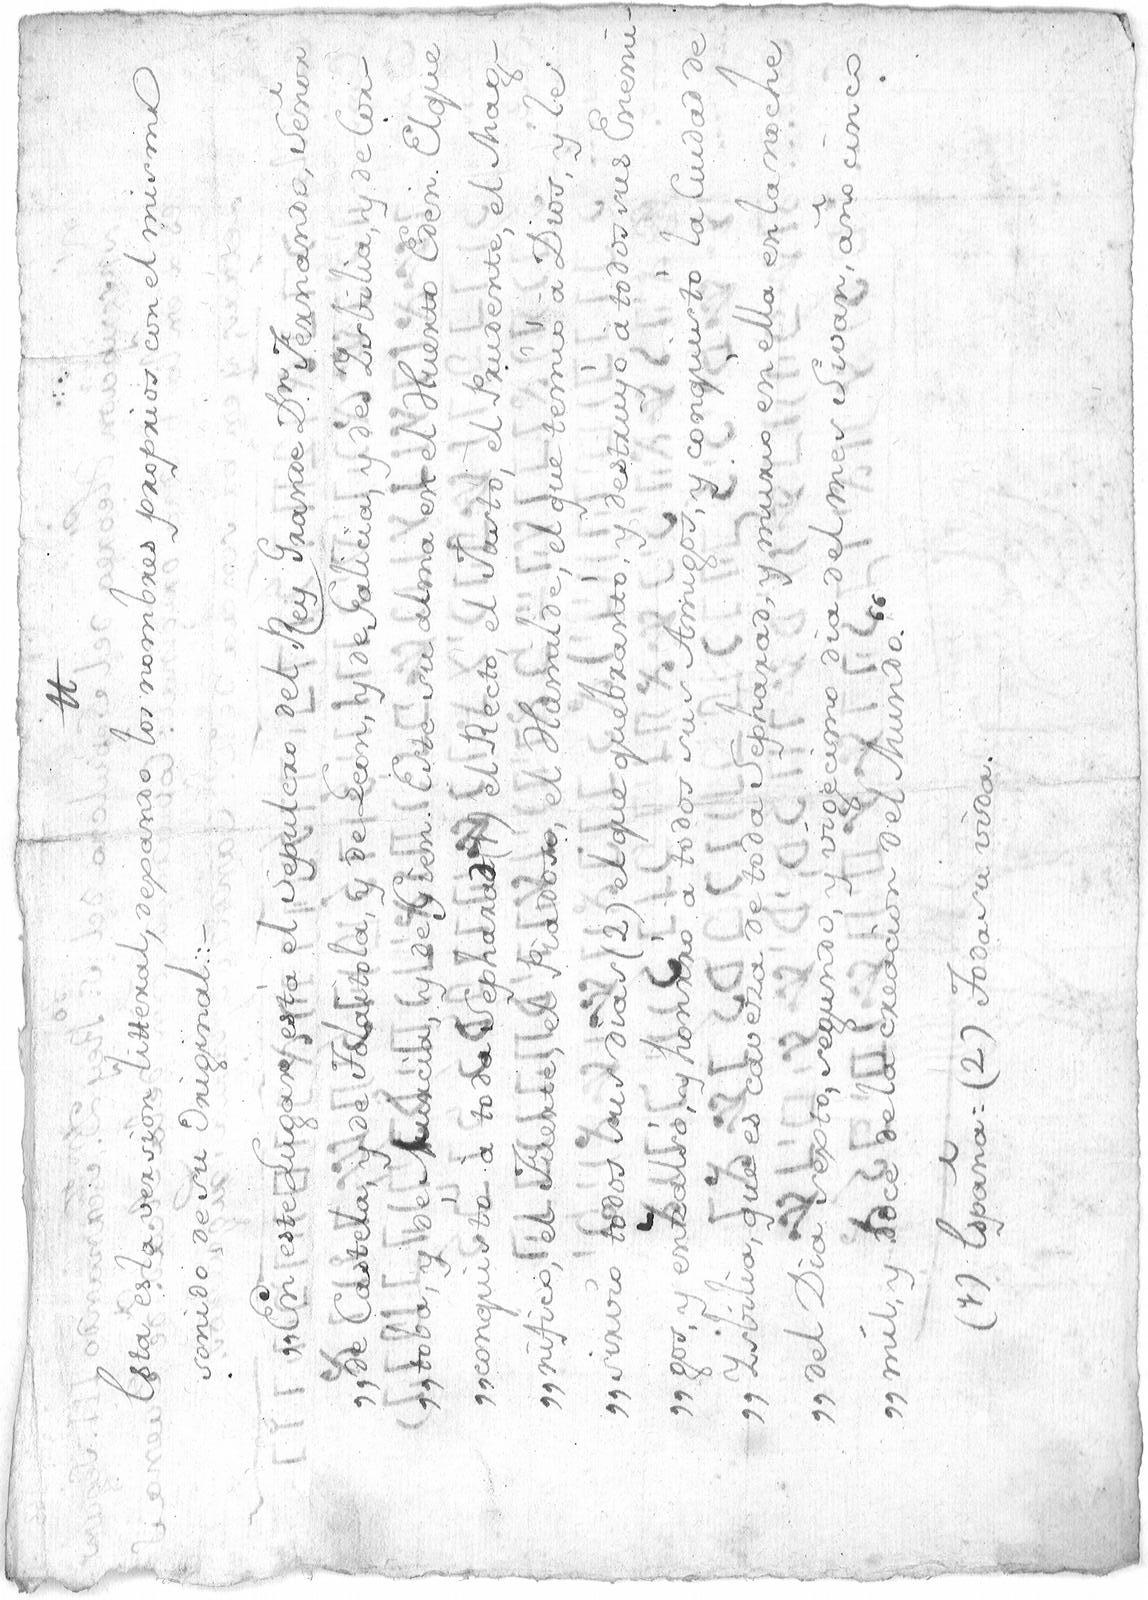 #
Esta es la version litteral, depando los nombres proprios con el mismo
sonido, de su Original.:-
,,En este Lugar, està el sepulcro del Rey Grande Dn. Fernando, Señor
,,de Castela, y de Tolaitola, y de Leon, y de Galicia, y de Ysbilia, y de Cor-
,,toba, y de Murcia, y de Gien. Este su alma en el Huerto Eden. El que
,,conquistò à toda Sepharad (1) el Recto, el Justo, el Prudente, el Mag-
,,nifico, el Fuerte, el Piadoso, el Humilde, el que temiò a Dios, y le
,,sirviò todos sus dias (2) el que quebrantò, y destruyò à todos sus Enemi-
,,gos, y enzalsò, y honrrò a todos sus Amigos, y conquistò la Ciudad de
,,Ysbilia, que es caveza de toda Sepharad, y murio en ella en la noche
,,del Dia sexto, segundo, y vigecimo dia del mes Sivan, año cinco
,,mil, y doce de la creacion del Mundo.“
(1) España= (2) Toda su vida.